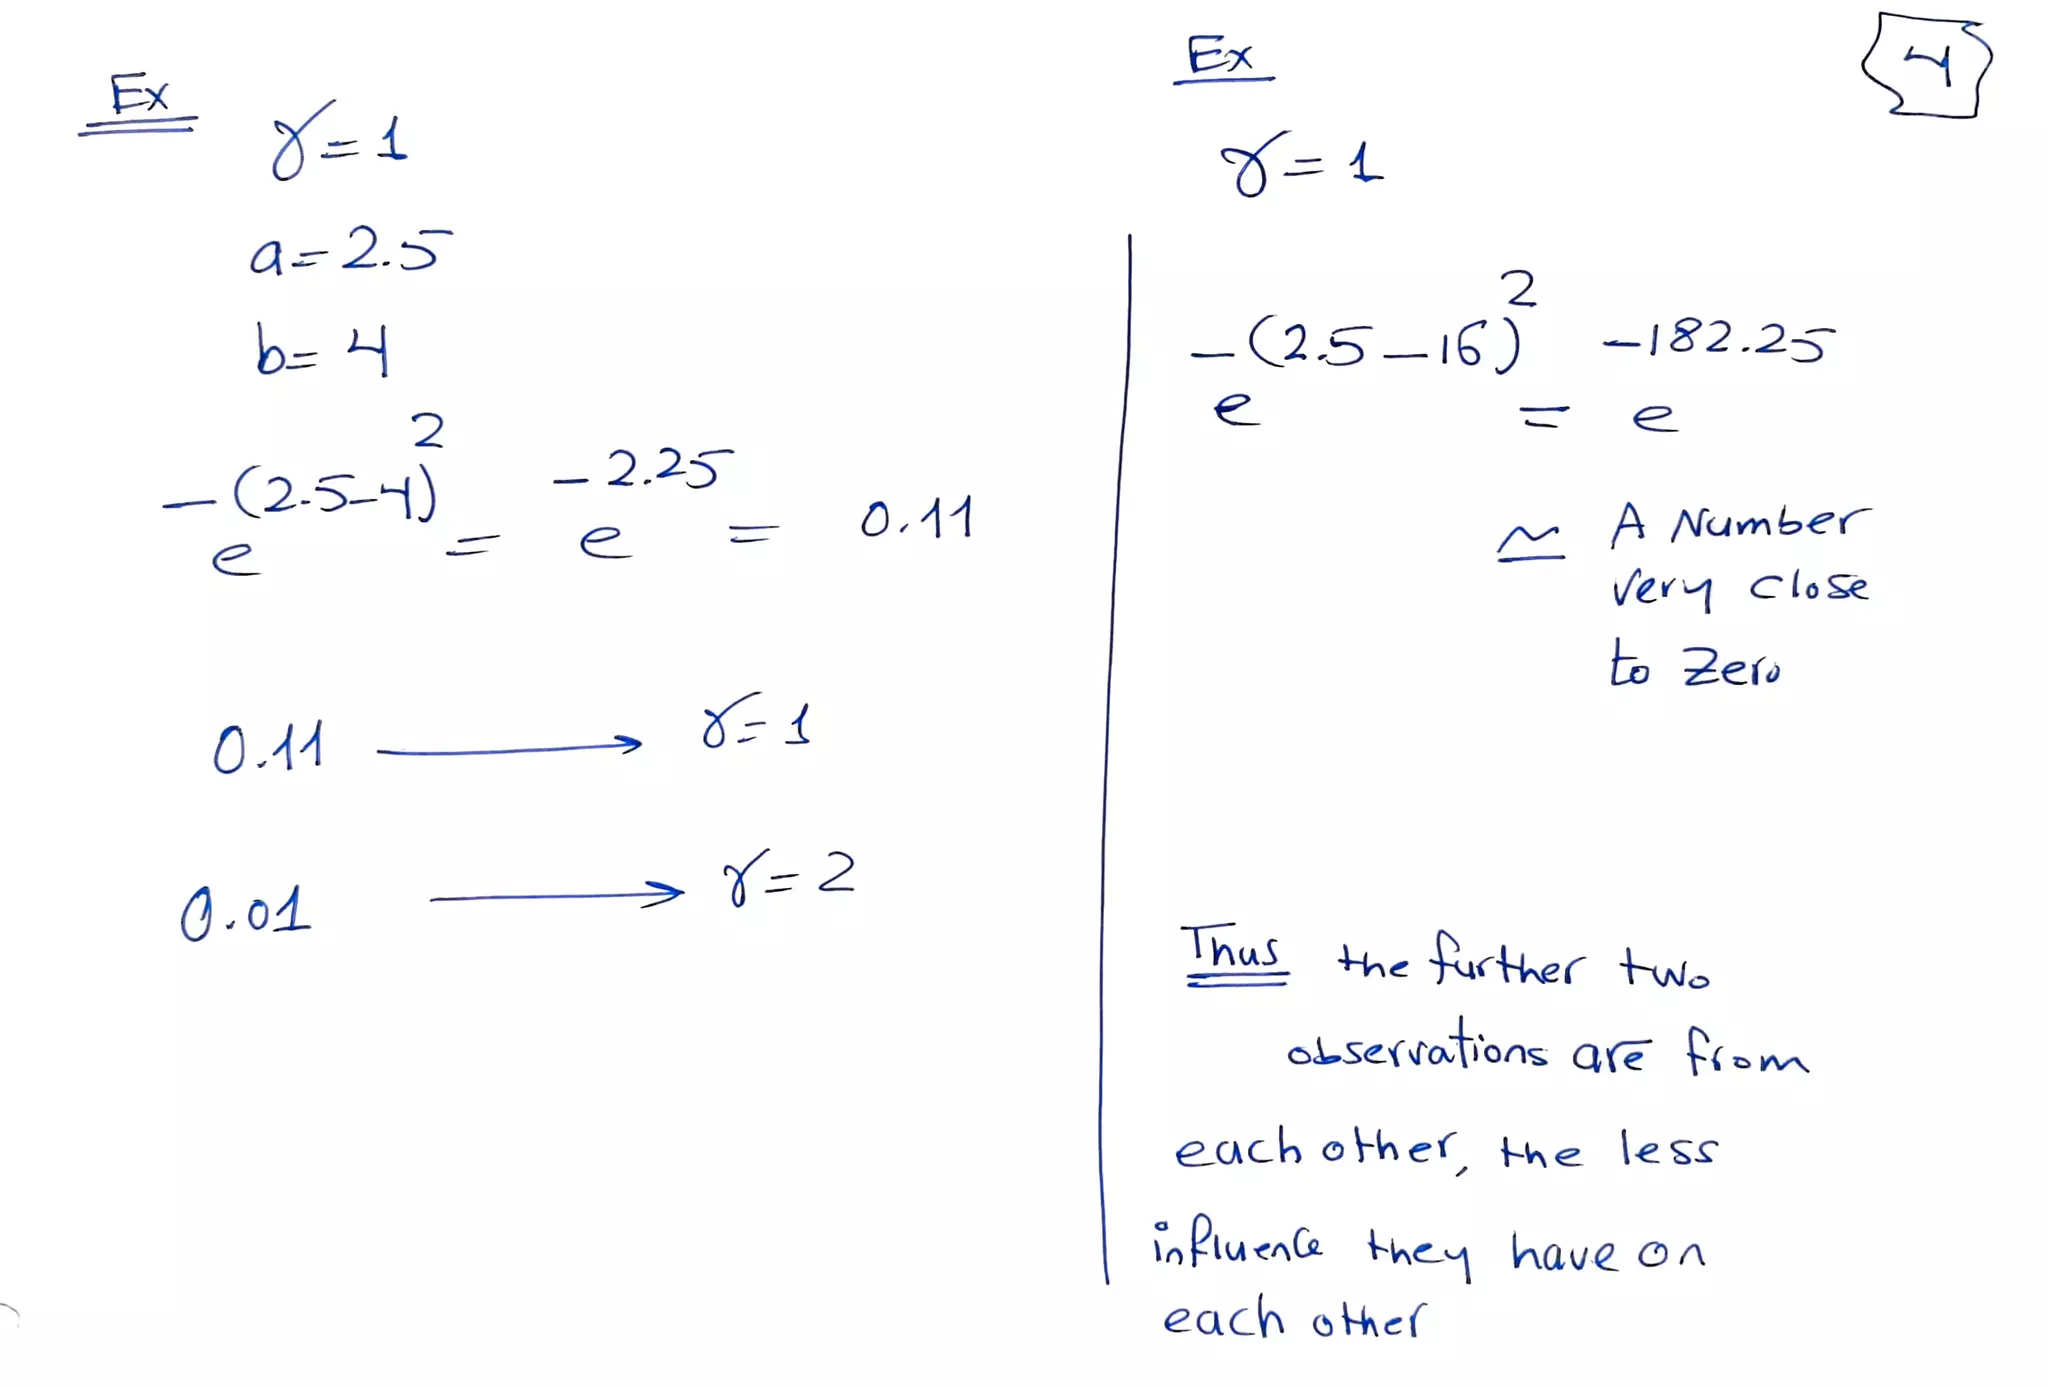 Ex
γ = 1
a = 2.5
b = 4
e^-(2.5-4)^2 = e^-2.25 = 0.11
0.11 → γ = 1
0.01 → γ = 2
4
Ex
γ = 1
e^-(2.5-16)^2 = e^-182.25
≃ A Number
very close
to Zero
Thus the further two
observations are from
each other, the less
influence they have on
each other